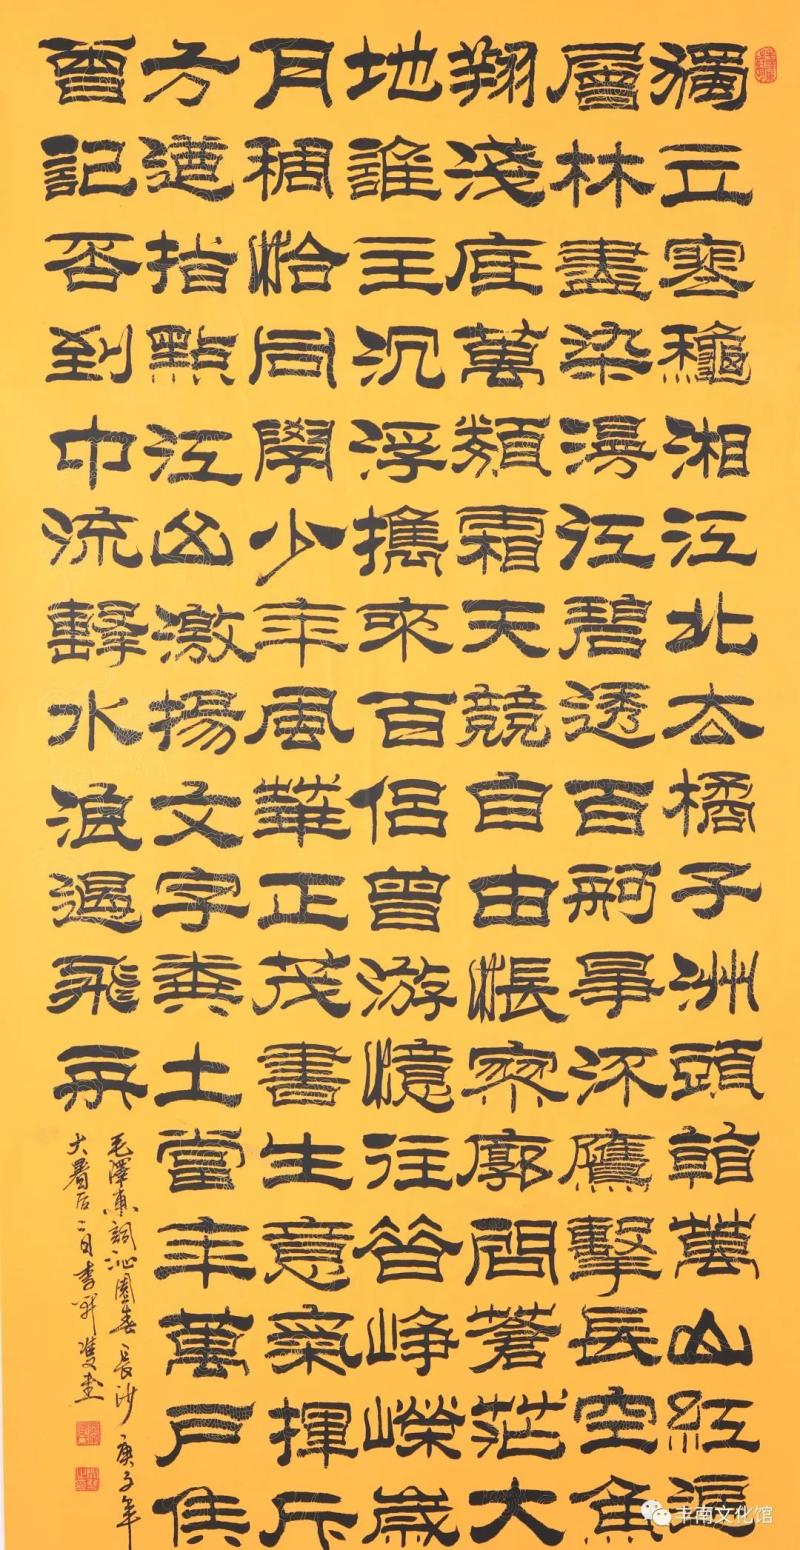 獨立寒龝湘江北去橘子洲頭看萬山紅遍
層林盡染漫江碧透百舸爭流鷹擊長空魚
翔淺底萬類霜天競自由悵寥廓問蒼茫大
地誰主沉浮攜來百侶曾游憶往昔崢嶸歲
月稠恰同學少年風華正茂書生意氣揮斥
方遒指點江山激揚文字糞土當年萬戶侯
曾記否到中流擊水浪遏飛舟
毛澤東詞沁園春長沙庚子年
大暑后二日李
丰南文化馆